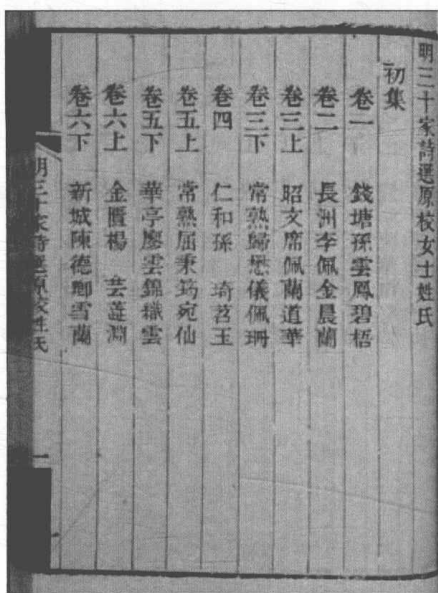 明三十家詩選原校女士姓氏
初集
卷一 錢塘孫雲鳳碧梧
卷二 長洲李佩金晨蘭
卷三上 昭文席佩蘭道華
卷三下 常熟歸懋儀佩珊
卷四 仁和孫 琦苕玉
卷五上 常熟屈秉筠宛仙
卷五下 華亭廖雲錦織雲
卷六上 金匱楊 芸蘂淵
卷六下 新城陳德卿雪蘭
明三十家詩選原校姓氏
一